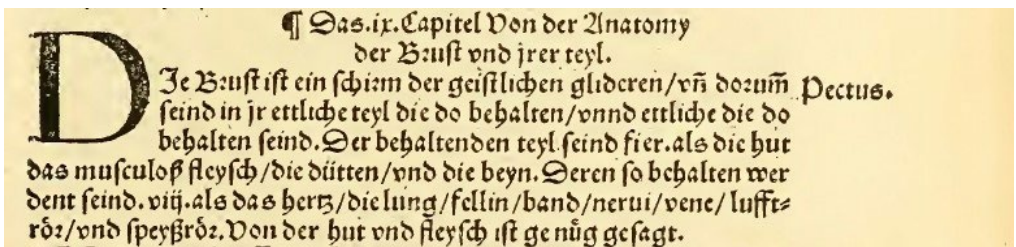 ¶ Das.ix.Capitel Von der Anatomy
der Bꝛuſt vnd jrer teyl.
DJe Bꝛuſt iſt ein ſchiꝛm der geiſtlichen glideren/vñ doꝛum̃ Pectus.
ſeind in jr ettliche teyl die do behalten/vnnd ettliche die do
behalten ſeind.Der behaltenden teyl ſeind fier.als die hut
das muſculoß fleyſch/die dütten/vnd die beyn.Deren ſo behalten wer
dent ſeind.viij.als das hertz/die lung/fellin/band/nerui/vene/lufft⸗
röꝛ/vnd ſpeyßröꝛ.Von der hut vnd fleyſch iſt ge nůg geſagt.